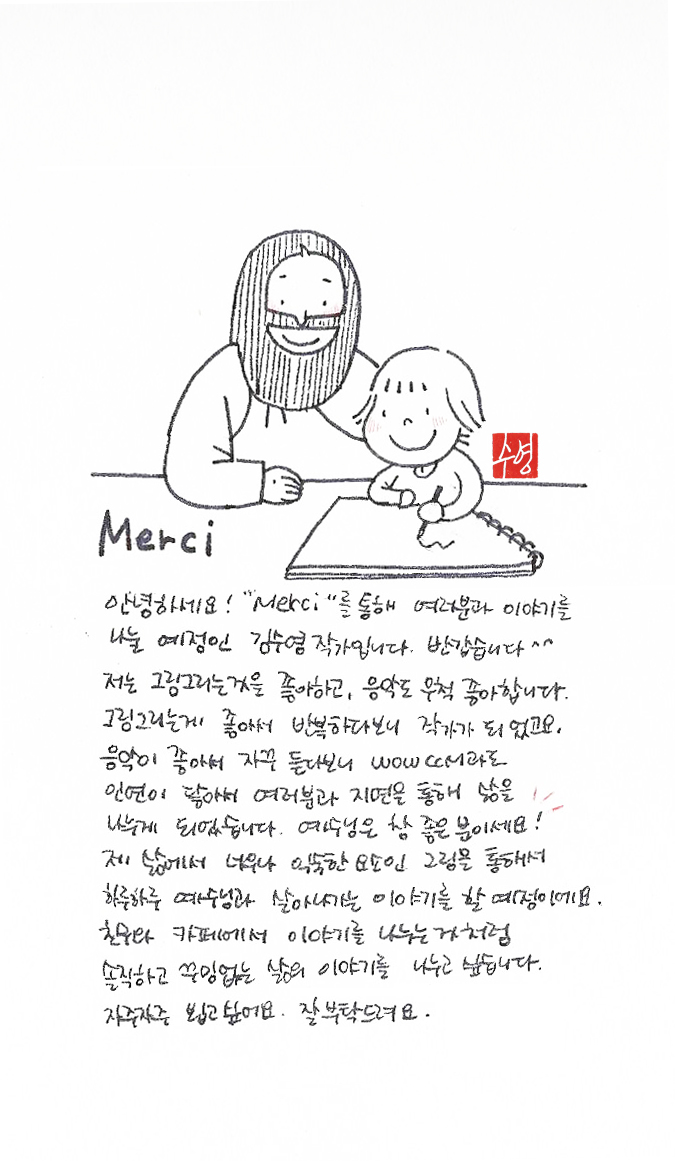 수영
Merci
안녕하세요! "Merci"를 통해 여러분과 이야기를
나눌 예정인 김수영 작가입니다. 반갑습니다^^
저는 그림그리는것을 좋아하고, 음악도 무척 좋아합니다.
그림그리는게 좋아서 반복하다보니 작가가 되었고요,
음악이 좋아서 자꾸 듣다보니 wowccm과도
인연이 닿아서 여러분과 지면을 통해 삶을
나누게 되었습니다. 예수님은 참 좋은 분이세요!
제 삶에서 너무나 익숙한 요소인 그림을 통해서
하루하루 예수님과 살아나가는 이야기를 할 예정이에요.
친구와 카페에서 이야기를 나누는 것처럼
솔직하고 꾸밈없는 삶의 이야기를 나누고 싶습니다.
자주자주 뵙고싶어요. 잘 부탁드려요.